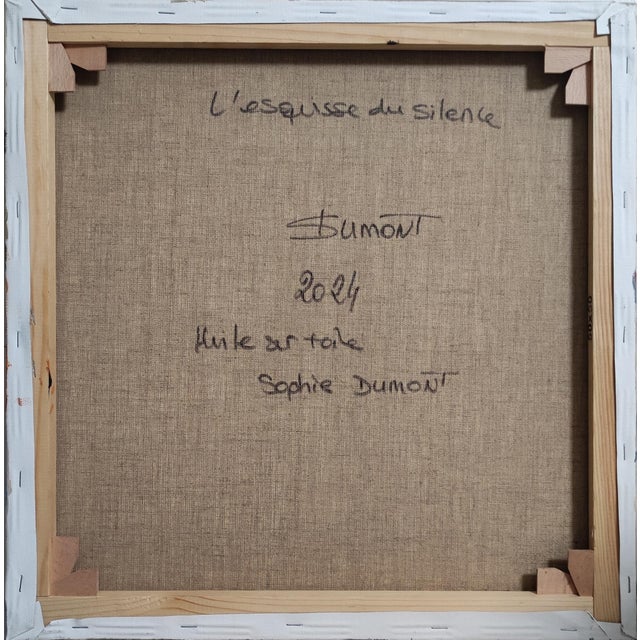 L'esquisse du silence
SDUMONT
2024
Huile sur toile
Sophie DUMONT